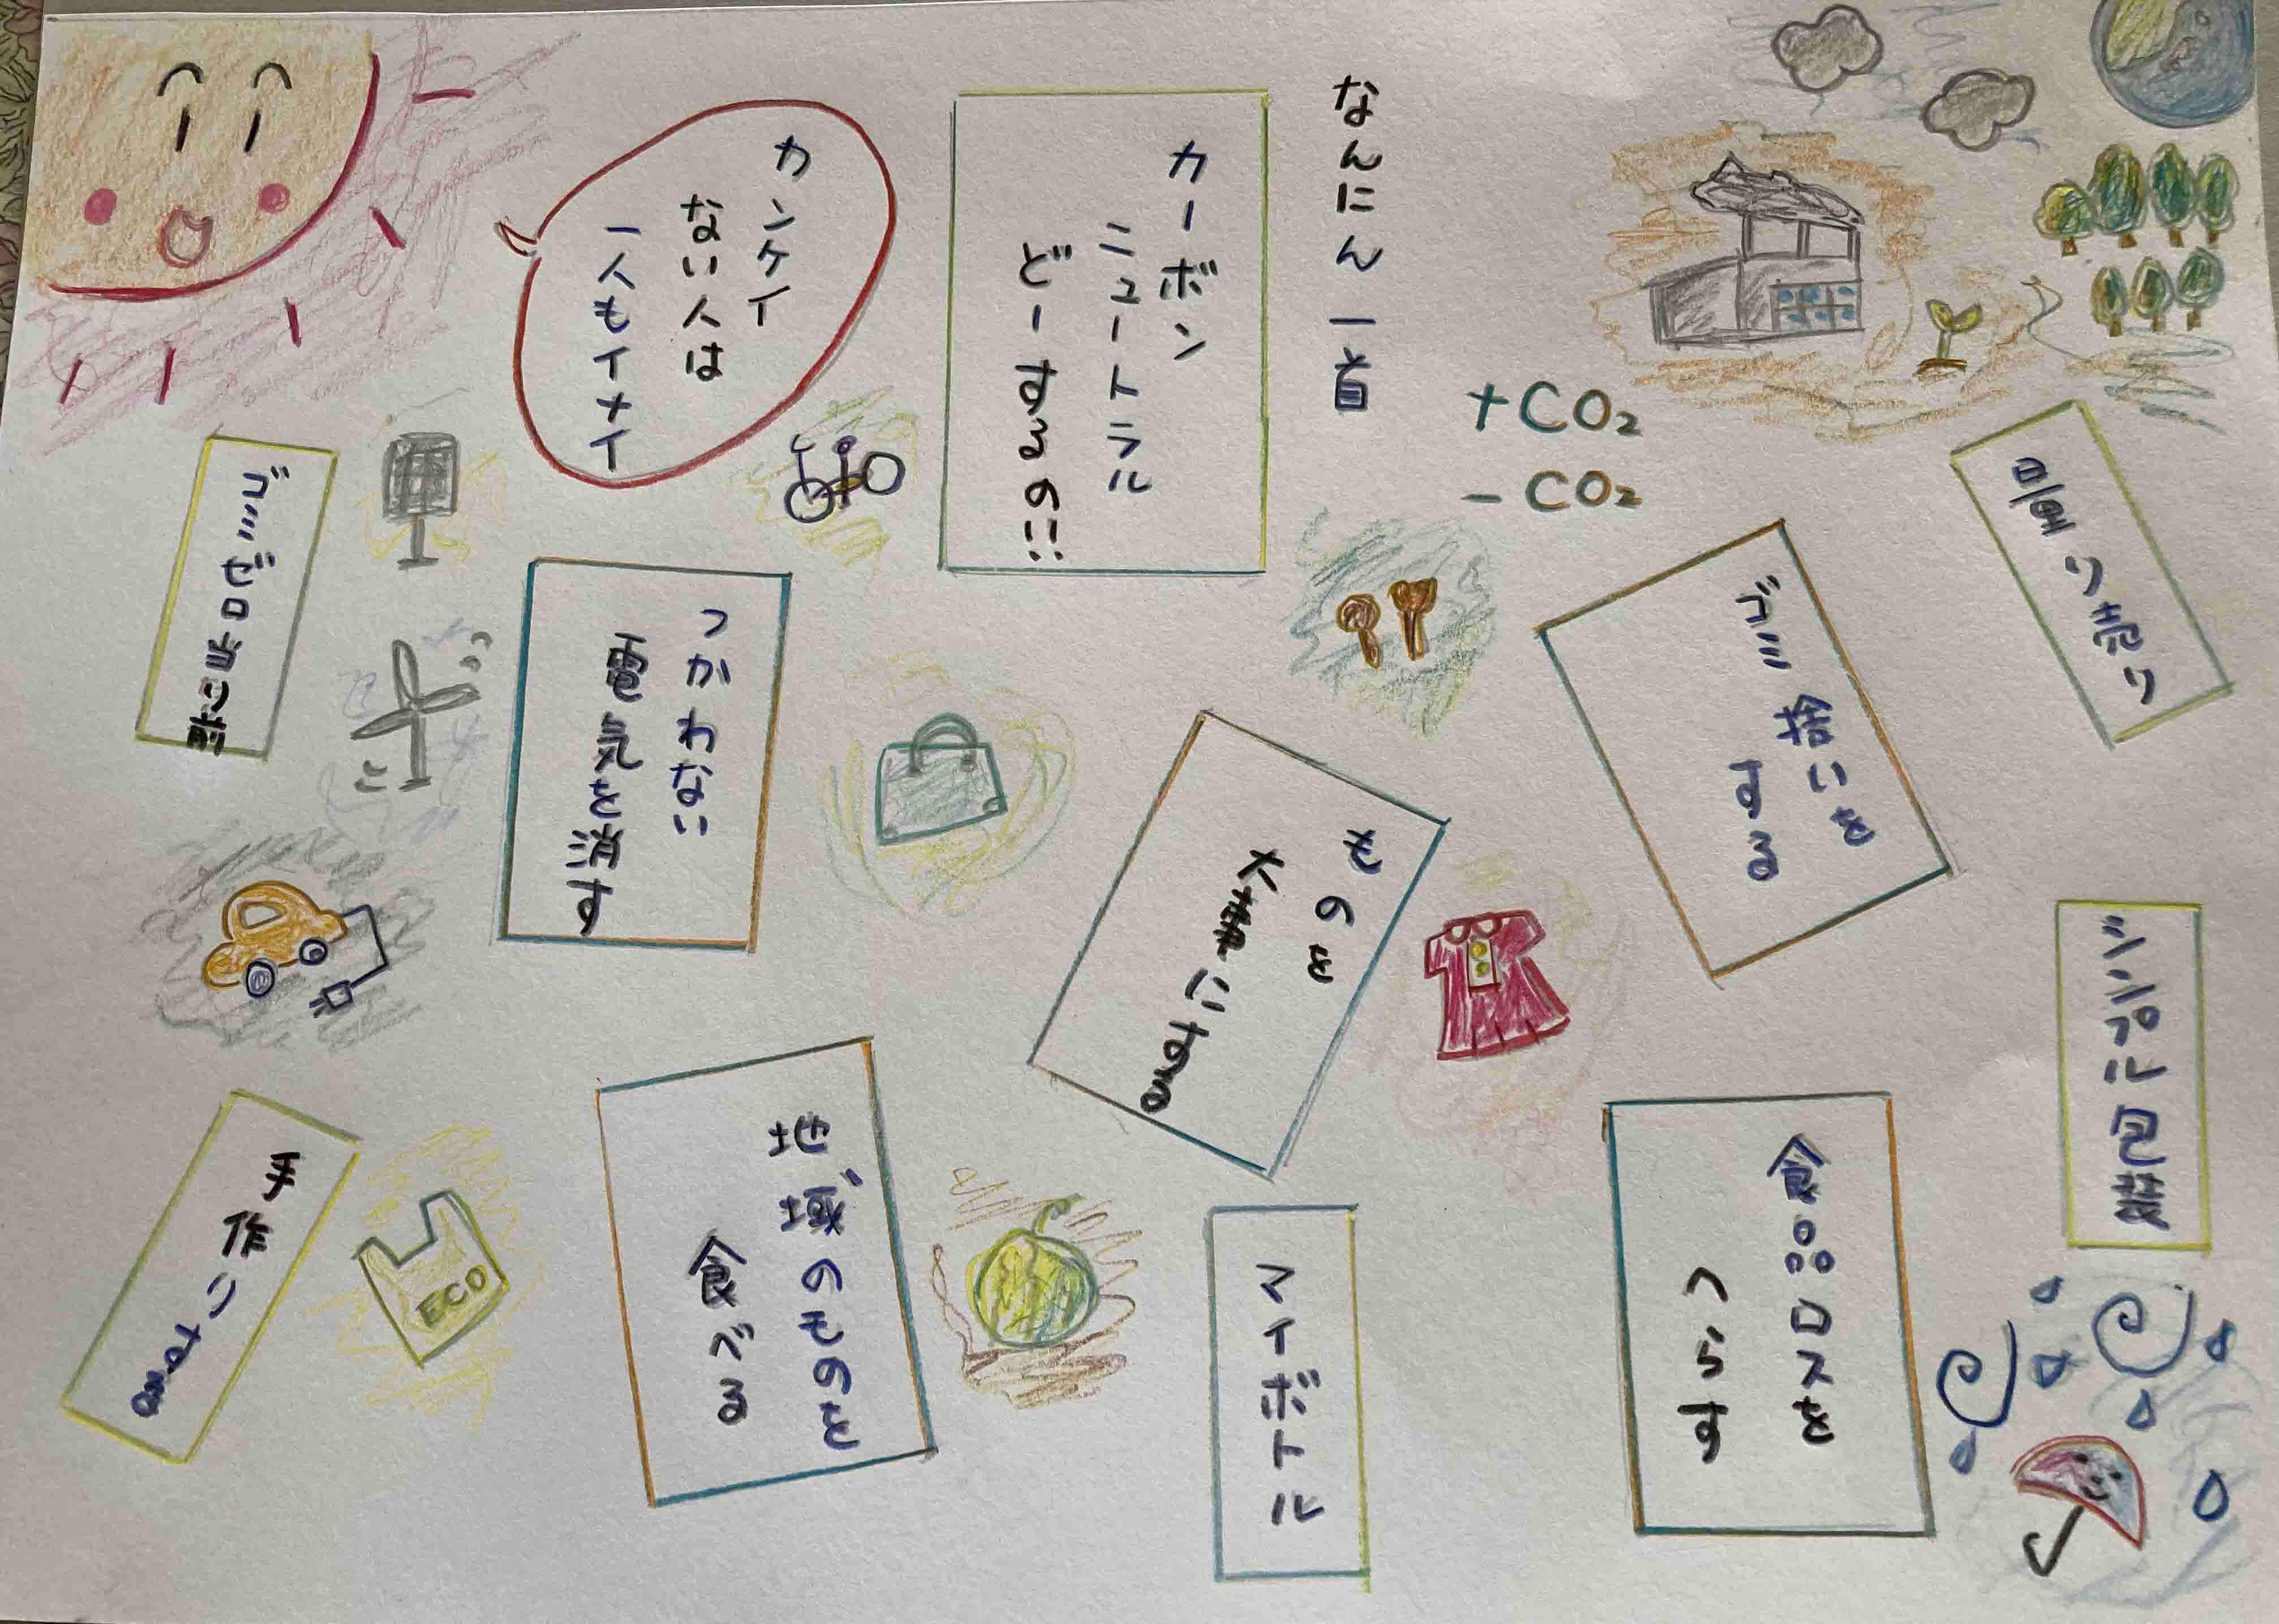 なんにん一首
カーボン
ニュートラル
どーするの!!
カンケイ
ない人は
一人もイナイ
+CO₂
-CO₂
量り売り
ゴミ拾いを
する
ものを
大事にする
つかわない
電気を消す
ゴミゼロ
シンプルに包装
食品ロスを
へらす
マイボトル
地域のものを
食べる
ECO
手作りする